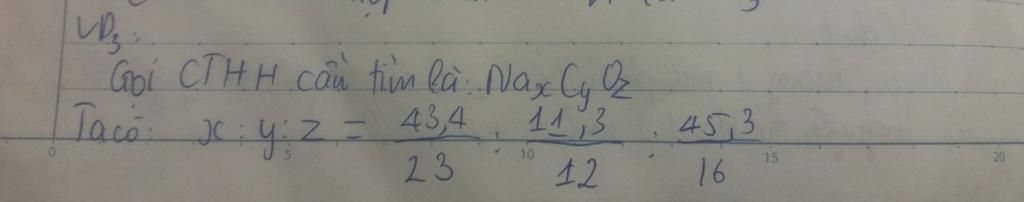 VD3:
Gọi CTHH cần tìm là: NaxCyOz
Ta có: x : y : z = 43,4/23 : 11,3/12 : 45,3/16
0 5 10 15 20